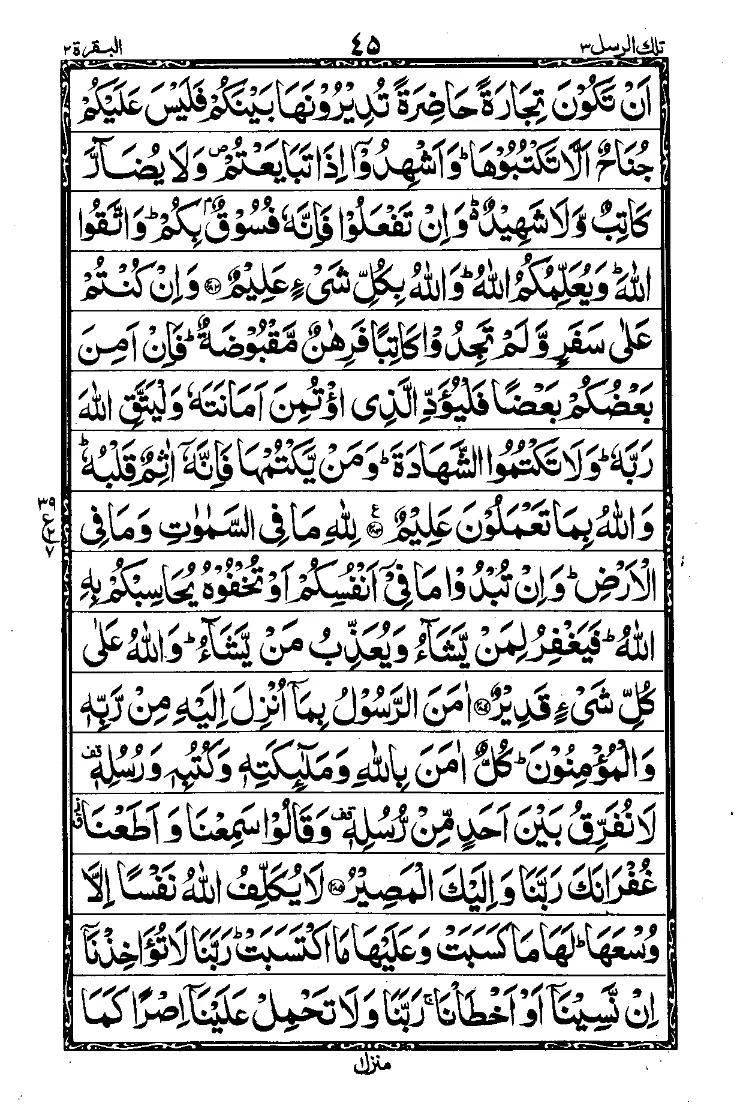 تلك الرسل ٣ ٤٥ البقرة ٢
اَنْ تَكُوْنَ تِجَارَةً حَاضِرَةً تُدِيْرُوْنَهَا بَيْنَكُمْ فَلَيْسَ عَلَيْكُمْ
جُنَاحٌ اَلَّا تَكْتُبُوْهَا ؕ وَاَشْهِدُوْۤا اِذَا تَبَايَعْتُمْ ۪ وَلَا يُضَآرَّ
كَاتِبٌ وَّلَا شَهِيْدٌ ؕ۬ وَاِنْ تَفْعَلُوْا فَاِنَّهٗ فُسُوْقٌۢ بِكُمْ ؕ وَاتَّقُوا
اللّٰهَ ؕ وَيُعَلِّمُكُمُ اللّٰهُ ؕ وَاللّٰهُ بِكُلِّ شَیْءٍ عَلِيْمٌ ﴿۲۸۲﴾ وَاِنْ كُنْتُمْ
عَلٰی سَفَرٍ وَّلَمْ تَجِدُوْا كَاتِبًا فَرِهٰنٌ مَّقْبُوْضَةٌ ؕ فَاِنْ اَمِنَ
بَعْضُكُمْ بَعْضًا فَلْيُؤَدِّ الَّذِی اؤْتُمِنَ اَمَانَتَهٗ وَلْيَتَّقِ اللّٰهَ
رَبَّهٗ ؕ وَلَا تَكْتُمُوا الشَّهَادَةَ ؕ وَمَنْ يَّكْتُمْهَا فَاِنَّهٗۤ اٰثِمٌ قَلْبُهٗ ؕ
وَاللّٰهُ بِمَا تَعْمَلُوْنَ عَلِيْمٌ ﴿۲۸۳﴾ ع لِلّٰهِ مَا فِی السَّمٰوٰتِ وَمَا فِی
٣٩
ع
٧
الْاَرْضِ ؕ وَاِنْ تُبْدُوْا مَا فِیْۤ اَنْفُسِكُمْ اَوْ تُخْفُوْهُ يُحَاسِبْكُمْ بِهِ
اللّٰهُ ؕ فَيَغْفِرُ لِمَنْ يَّشَآءُ وَيُعَذِّبُ مَنْ يَّشَآءُ ؕ وَاللّٰهُ عَلٰی
كُلِّ شَیْءٍ قَدِيْرٌ ﴿۲۸۴﴾ اٰمَنَ الرَّسُوْلُ بِمَاۤ اُنْزِلَ اِلَيْهِ مِنْ رَّبِّهٖ
وَالْمُؤْمِنُوْنَ ؕ كُلٌّ اٰمَنَ بِاللّٰهِ وَمَلٰٓئِكَتِهٖ وَكُتُبِهٖ وَرُسُلِهٖ قف
لَا نُفَرِّقُ بَيْنَ اَحَدٍ مِّنْ رُّسُلِهٖ قف وَقَالُوْا سَمِعْنَا وَاَطَعْنَا
غُفْرَانَكَ رَبَّنَا وَاِلَيْكَ الْمَصِيْرُ ﴿۲۸۵﴾ لَا يُكَلِّفُ اللّٰهُ نَفْسًا اِلَّا
وُسْعَهَا ؕ لَهَا مَا كَسَبَتْ وَعَلَيْهَا مَا اكْتَسَبَتْ ؕ رَبَّنَا لَا تُؤَاخِذْنَاۤ
اِنْ نَّسِيْنَاۤ اَوْ اَخْطَاْنَا ۚ رَبَّنَا وَلَا تَحْمِلْ عَلَيْنَاۤ اِصْرًا كَمَا
منزل ١